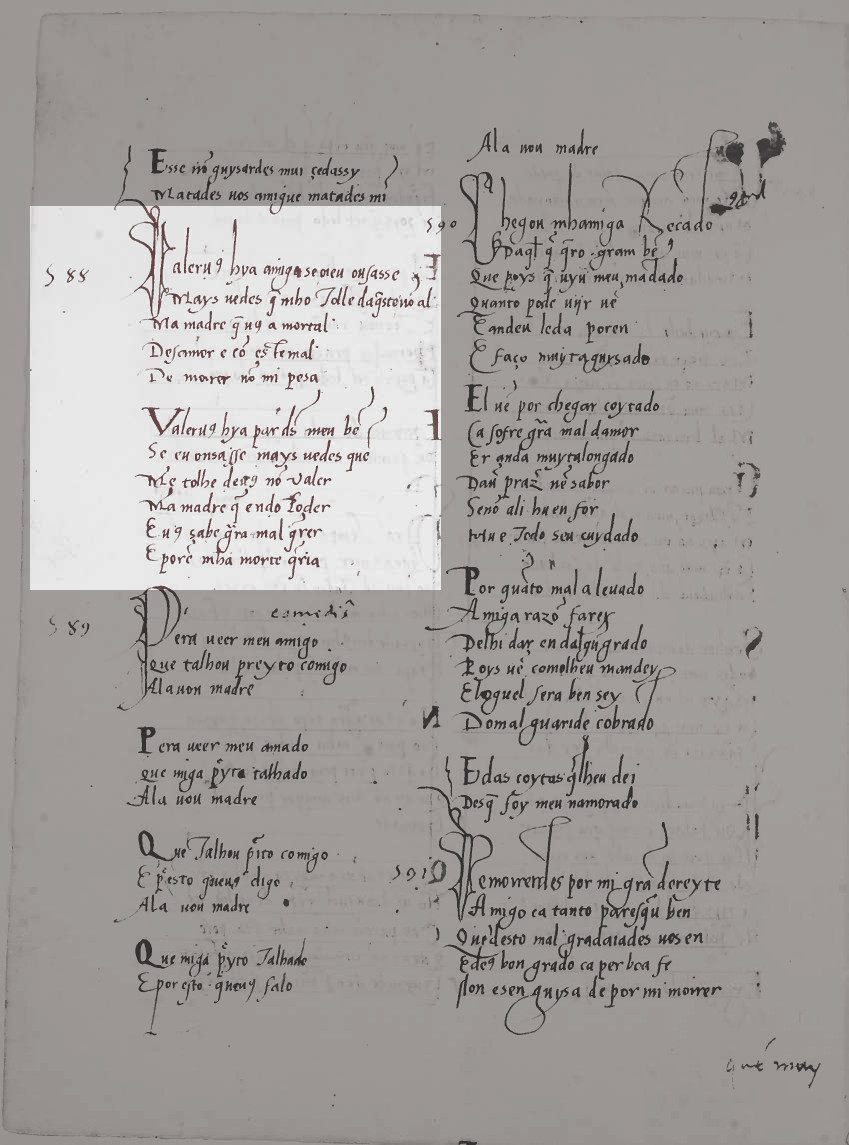 Esse nõ guysardes mui çedassy
Matades uos amigue matades mi
588
Valeruꝯ hya amigo se o eu ousasse
Mays uedes q̃ mho Tolle daq̃sto nõ al
Ma madre q̃ uꝯ a mortal
Desamor e cõ este mal
De morrer nõ mi pesa
Valeruꝯ hya par ds̃ meu bẽ
Se eu ousasse mays uedes que
Me tolhe deuꝯ nõ valer
Ma madre q̃ endo Poder
E uꝯ sabe grã mal q̃rer
E porẽ mha morte q̃ria
589
Pera ueer meu amigo
Que talhou preyto comigo
Ala uou madre
Pera ueer meu amado
Que miga p̃yto talhado
Ala uou madre
Que Talhou p̃ito comigo
E p̃esto queuꝯ digo
Ala uou madre
Que miga p̃yto Talhado
E por esto q̃ueuꝯ falo
Ala uou madre
590
Chegou mhamiga Recado
Daql̃ q̃ q̃ro gram bẽ
Que poys q̃ uyu meu mãdado
Quanto pode uijr uẽ
E andeu leda poren
E faço muyt aguysado
El uẽ por chegar coytado
Ca sofre grã mal damor
Er anda muyt alongado
Dau̾ praz̾ nẽ sabor
Senõ ali hu eu for
Hu e Todo seu cuydado
Por quãto mal a leuado
Amiga razõ farey
Delhi dar endalgũ grado
Poys uẽ comolheu mandey
E loguel sera ben sey
Do mal guaride cobrado
E das coytas q̃lheu dei
Desq̃ foy meu namorado
591
Se morrerdes por mi grã dereyte
Amigo ca tanto paresq̃u ben
Que desto mal gradaiades uos en
E deꝯ bon grado ca per bõa fe
Non e sen guysa de por mi morrer
que may